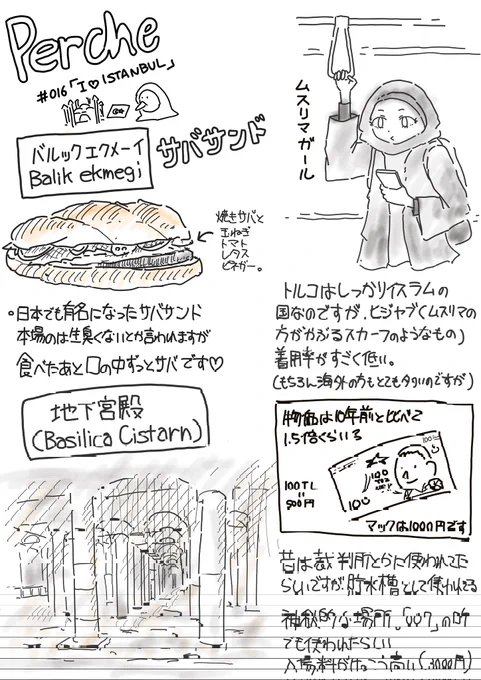 Perche
#016「I♡ISTANBUL」
バルック エクメーイ
Balik ekmegi
サバサンド
焼きサバと
玉ねぎ
トマト
レタス
ビネガー。
・日本でも有名になったサバサンド
本場のは生臭くないとか言われますが
食べたあと口の中ずっとサバです♡
地下宮殿
(Basilica Cistarn)
ムスリマガール
トルコはしっかりイスラムの
国なのですが、ヒジャブ(ムスリマの
方がかぶるスカーフのようなもの)
着用率がすごく低い。
(もちろん海外の方もとても多いのですが)
物価は10年前と比べて
1.5倍くらいる
100TL
=
500円
100
100
マックは1000円です
昔は裁判所とかに使われてた
らしいですが貯水槽として使われてる
神秘的な場所。「007」の
でも使われたらしい
入場料がけっこう高い(3000円)